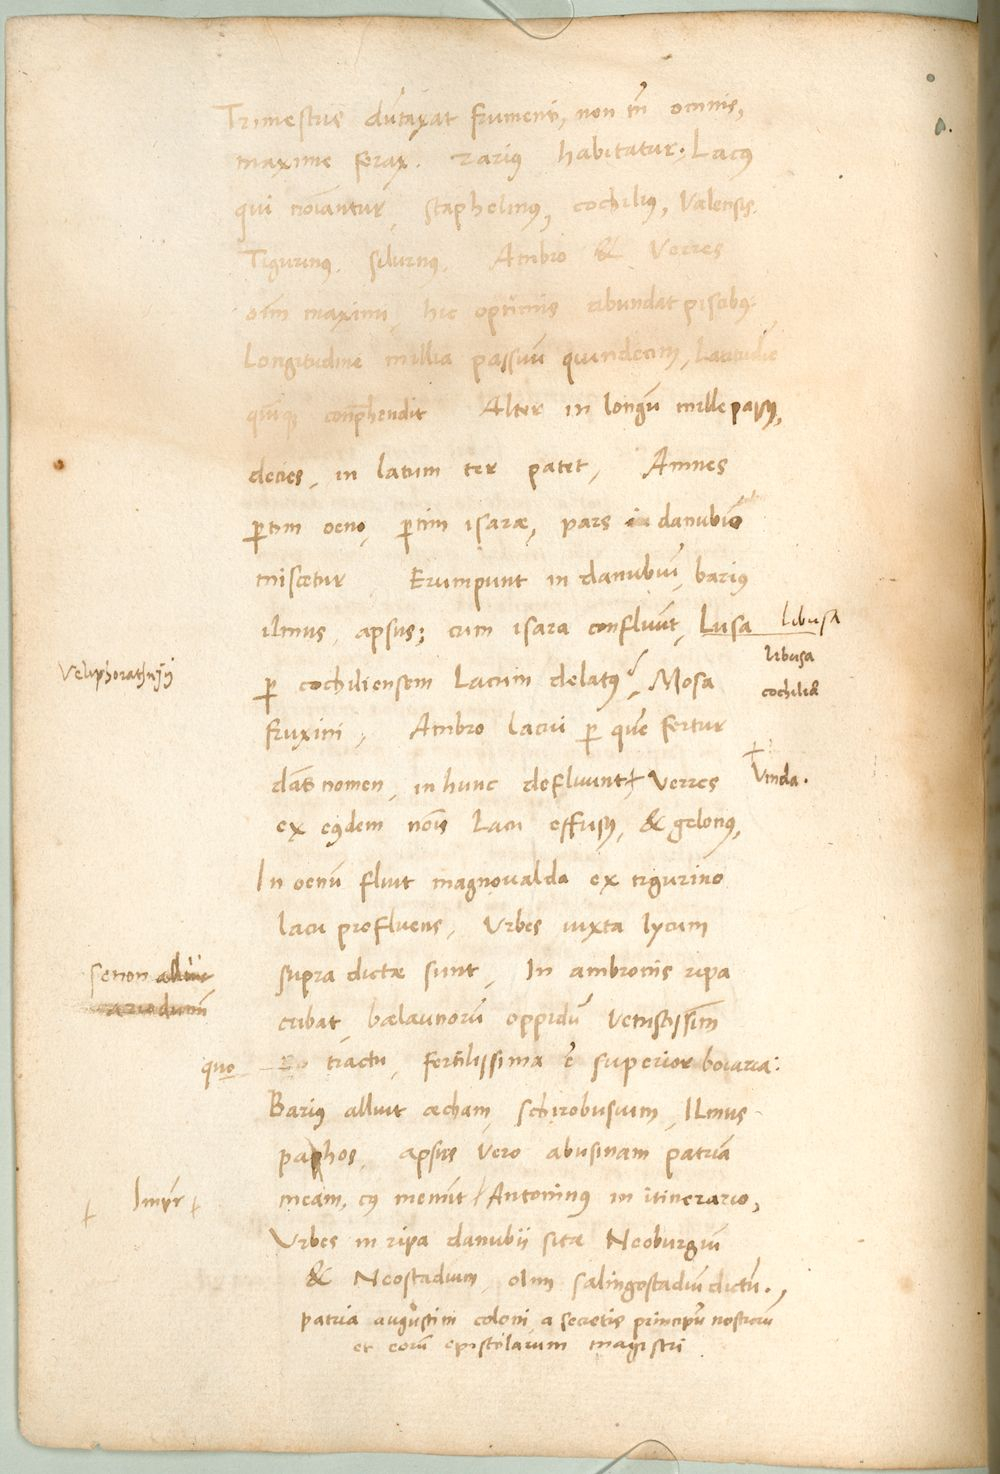 Trimestris dūtaxat frumenti, non tn̄ omnis,
maxime ferax. rarius habitatur. Lacꝯ
qui noīantur, staphelinꝯ, cochiliꝯ, Valensis.
Tigurinꝯ, silurnꝯ, Ambro & Verres
oīm maximi, hic optimis abundat piscibꝯ.
Longitudine millia passuū quindecim, Latitudīe
quīqꝫ cōprehendit Alter in longū mille passꝯ,
decies, in latum ter patet, Amnes
ꝑtim oeno, ꝑtim isaræ, pars in danubiū
miscetur Erumpunt in danubiū, barius
ilmus, apsus; cum isara confluūt, Lusa libusa
libusa
Veliphorathnÿÿ
ꝑ cochiliensem Lacum delatꝯ, Mosa
cochiliæ
fruxini, Ambro lacui ꝑ quē fertur
dās nomen, in hunc defluunt + Verres
+ Vinda.
ex eiꝯdem noīs Lacu effusꝯ, & gelonꝯ,
In oenū fluit magnoualda ex tigurino
lacu profluens, Urbes iuxta lycum
supra dictæ sunt, In ambronis ripa
senon alluit
cubat bælaunorū oppidū vetustissīm
quo tractu, fertilissima ē superior boiaria:
Barius alluit acham, schirobusium, Ilmus
paphos, apsus vero abusinam patriā
meam, cꝯ meminīt Antoninus in itinerario,
+ Impr̄ +
Urbes in ripa danubii sitæ Neoburgiū
& Neostadium, olim salingostadiū dictū.,
patria augustini coloni a secretis principū nostrorū
et eorū epistolarum magistri